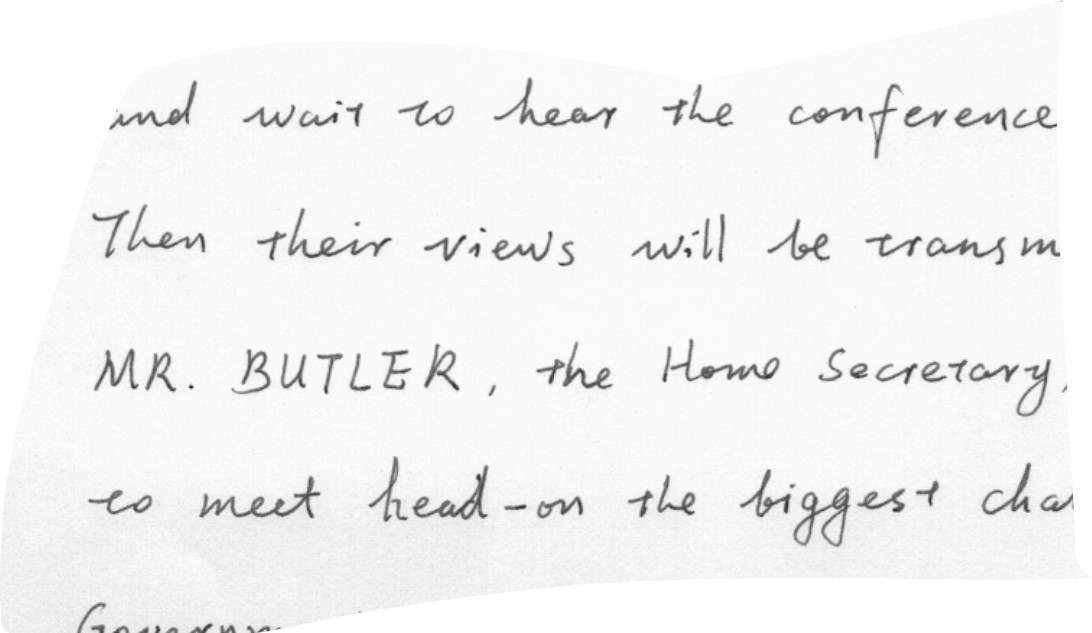 and wait to hear the conference
Then their views will be
MR. BUTLER, the Home Secretary,
to meet head-on the biggest